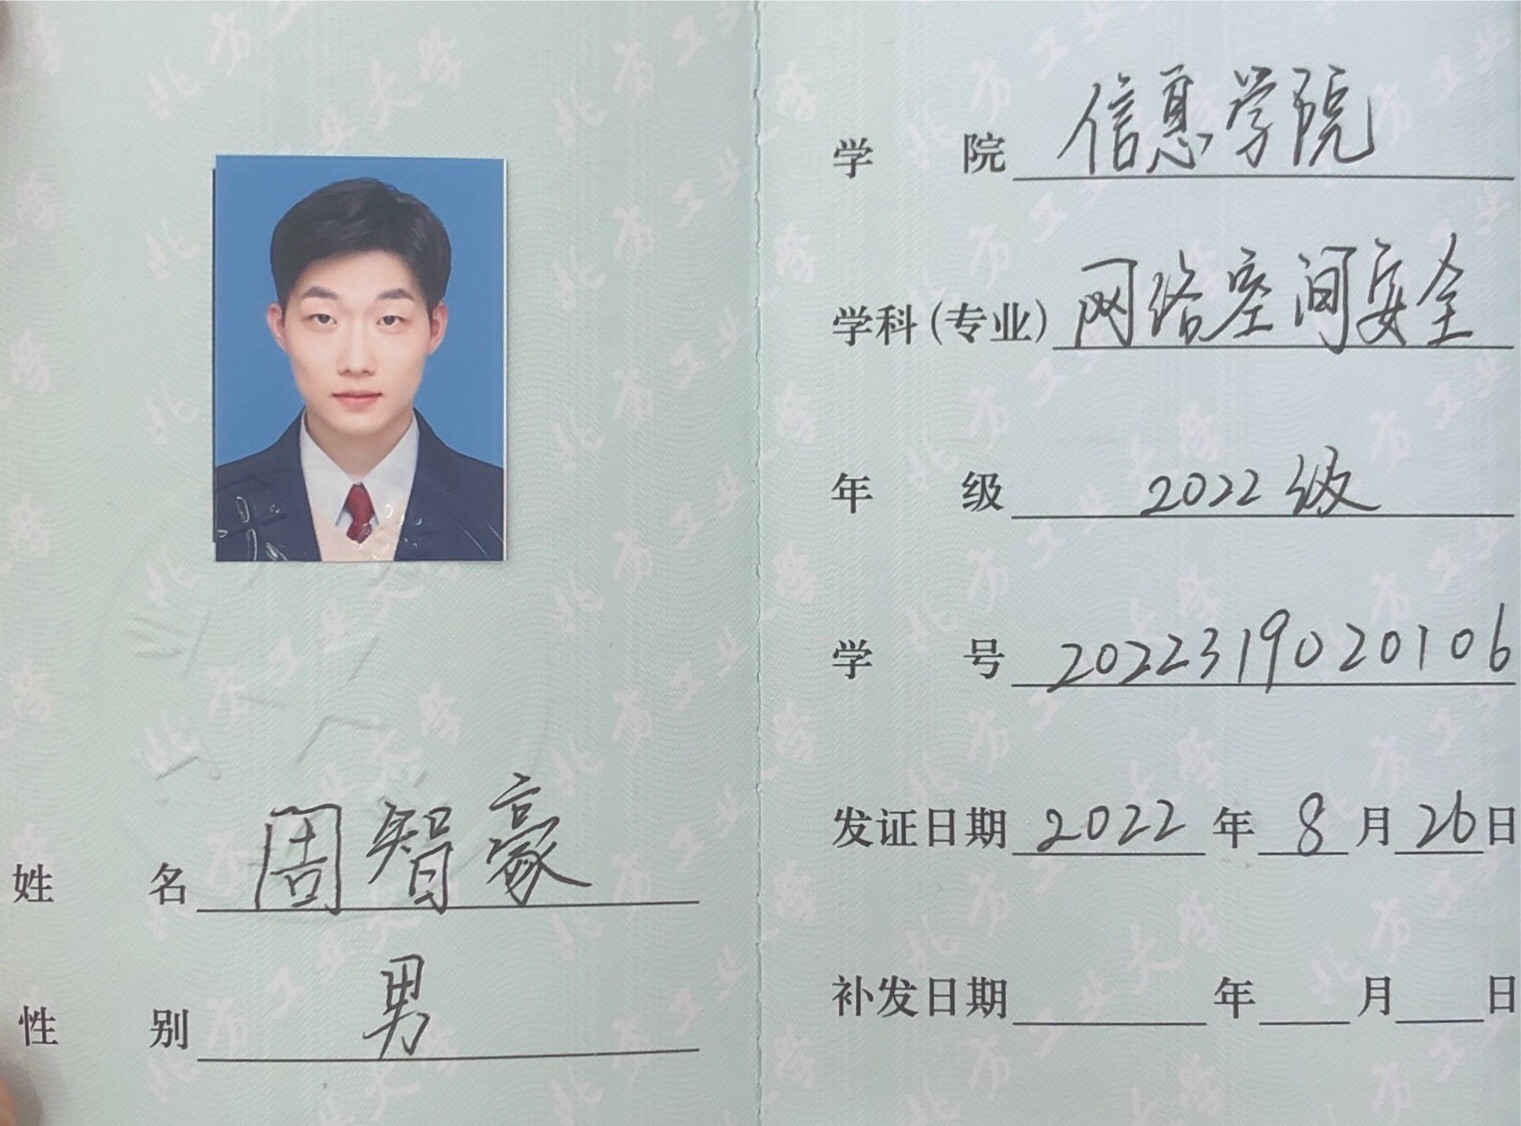 姓名 周智豪
性别 男
学院 信息学院
学科(专业) 网络空间安全
年级 2022级
学号 2022319020106
发证日期 2022 年 8 月 26 日
补发日期 年 月 日
北京工业大学